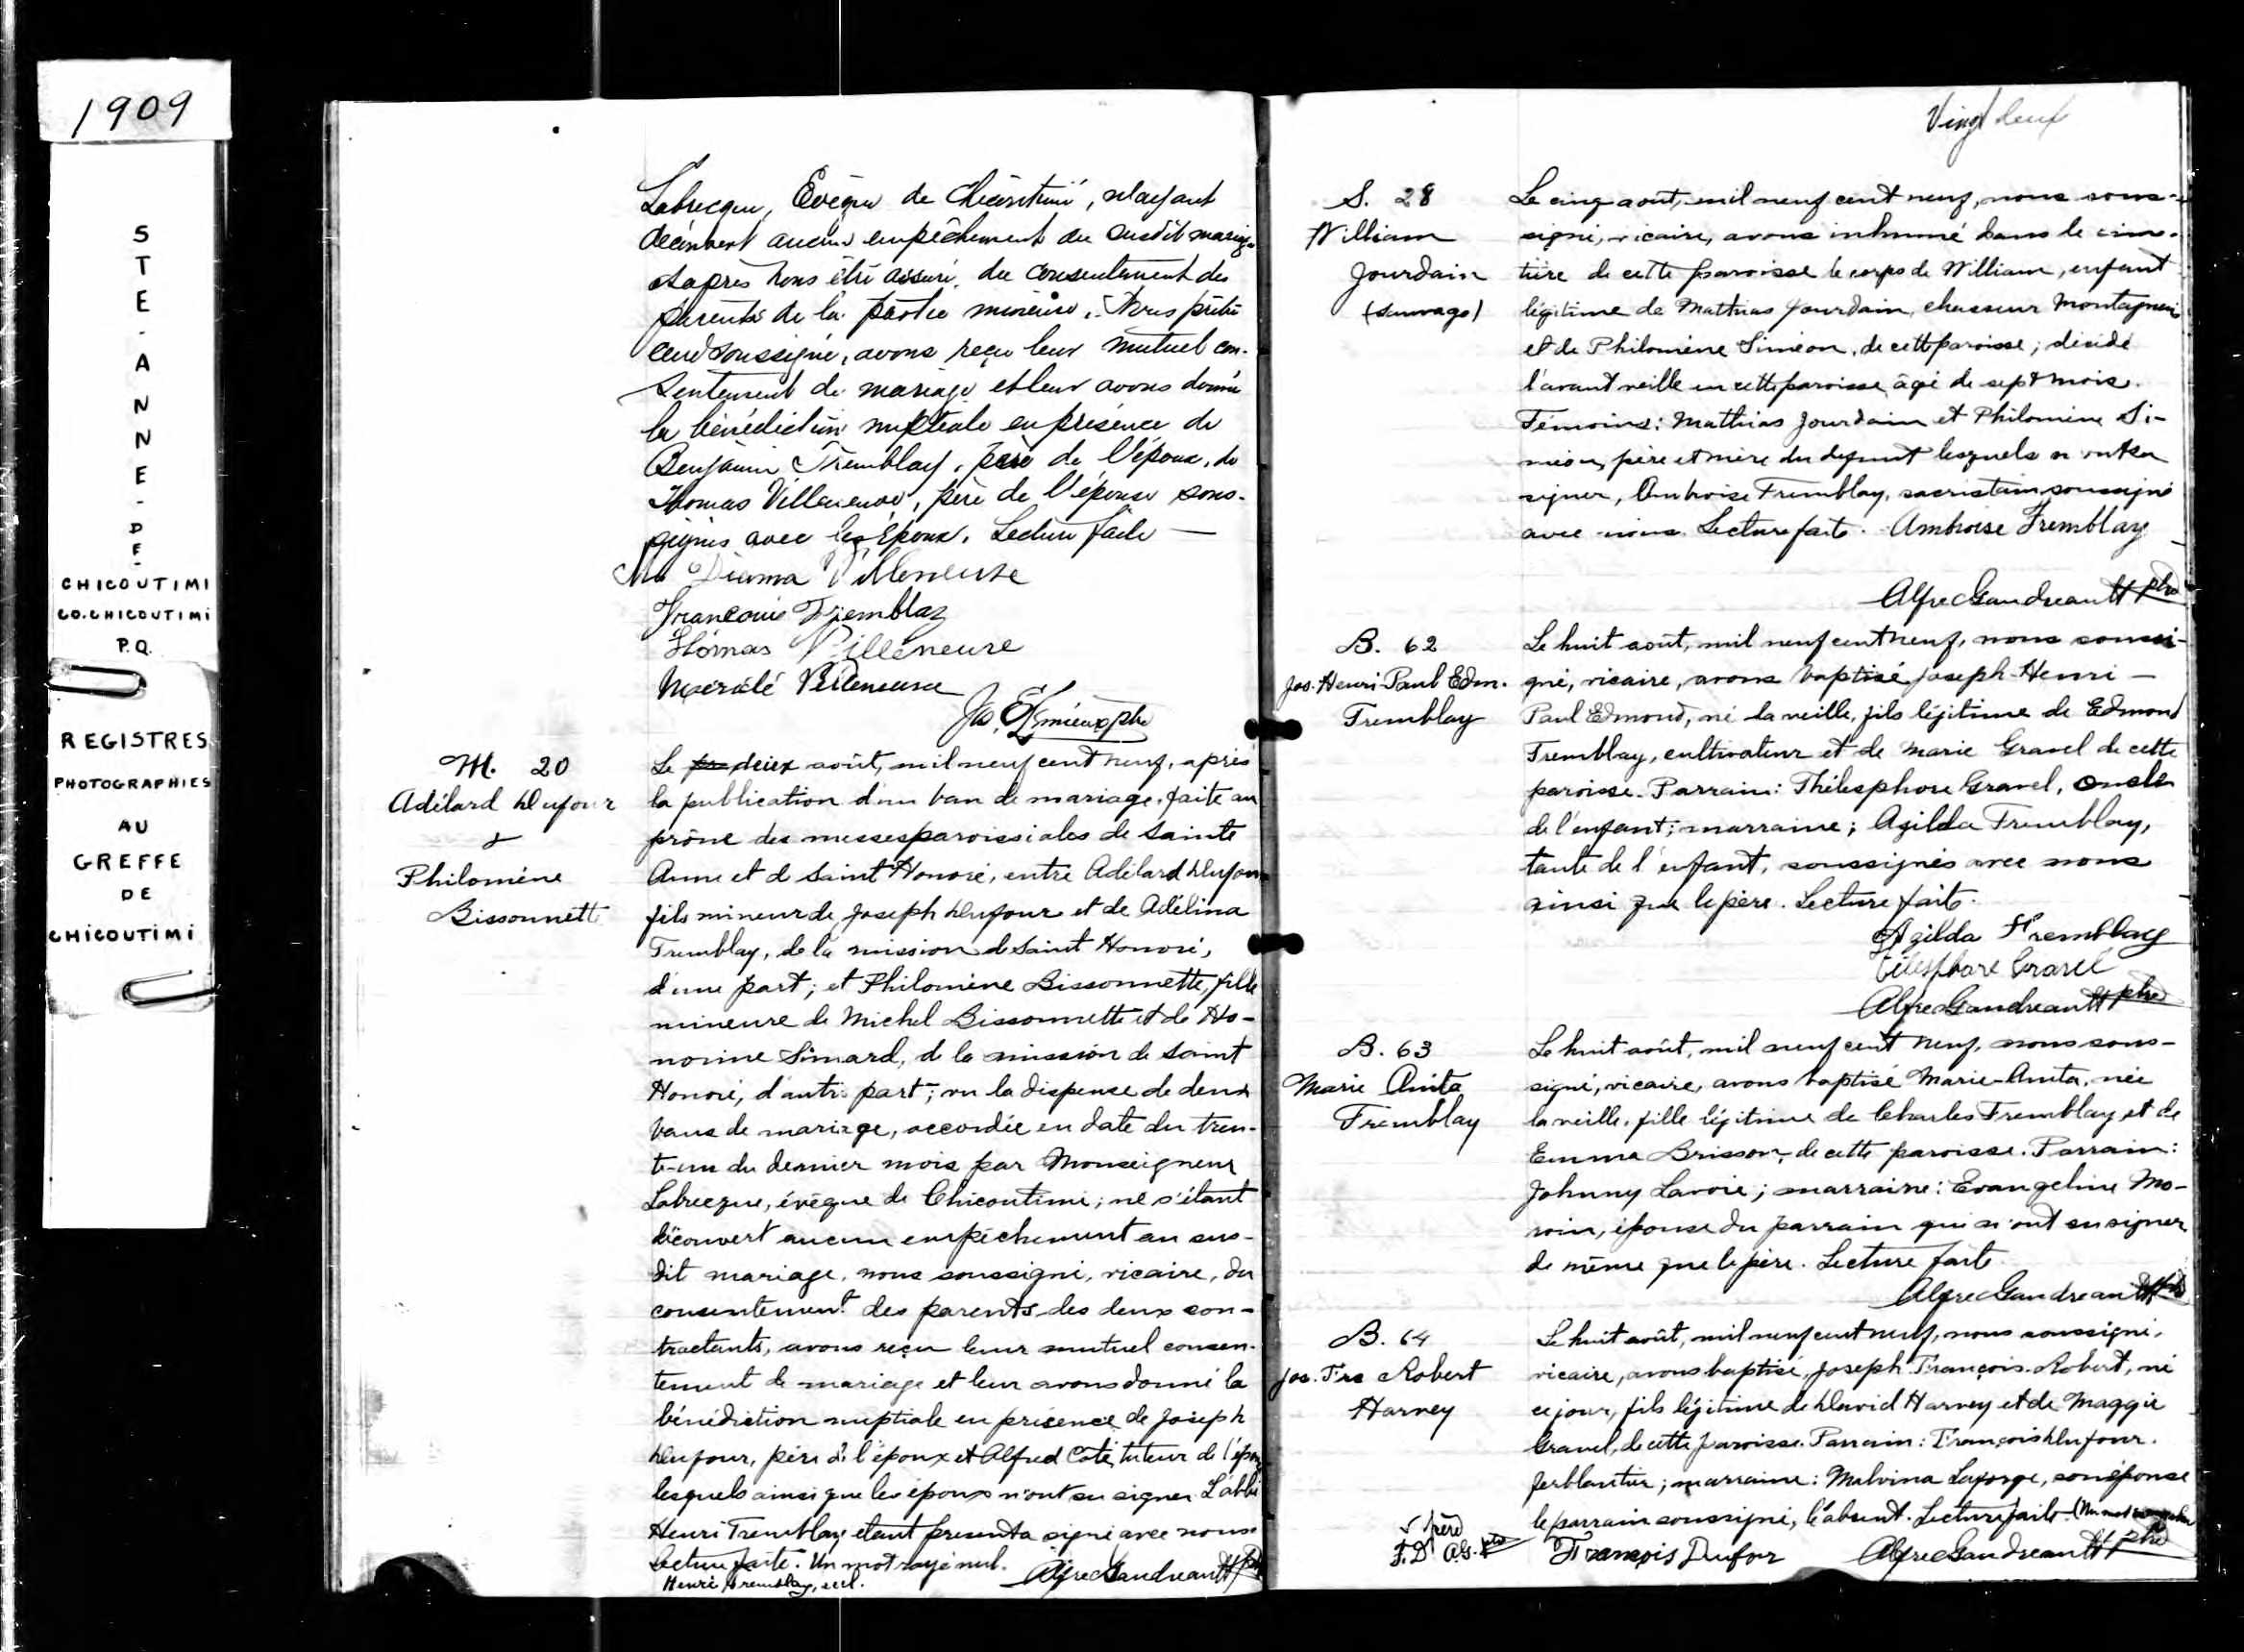 1909
STE-ANNE-DE-
CHICOUTIMI
CO. CHICOUTIMI
P.Q.
REGISTRES
PHOTOGRAPHIES
AU
GREFFE
DE
CHICOUTIMI
Labrecque, Evêque de Chicoutimi, n'ayant
découvert aucun empêchement au susdit mariage
et après nous être assuré du consentement des
parents de la partie mineure, Nous prêtre
curé soussigné, avons reçu leur mutuel con-
sentement de mariage et leur avons donné
la bénédiction nuptiale en présence de
Benjamin Tremblay, père de l'époux, de
Thomas Villeneuve, père de l'épouse sous-
signés avec les époux. Lecture faite —
Villeneuve
François Tremblay
Thomas Villeneuve
Villeneuve
Jos. E. Lemieux ptre
M. 20
Adélard Dufour
&
Philomène
Bissonnette
Le deux août, mil neuf cent neuf, après
la publication d'un ban de mariage, faite au
prône des messes paroissiales de Sainte
Anne et de Saint Honoré, entre Adélard Dufour
fils mineur de Joseph Dufour et de Adélina
Tremblay, de la mission de Saint Honoré,
d'une part; et Philomène Bissonnette, fille
mineure de Michel Bissonnette et de Ho-
norine Simard, de la mission de Saint
Honoré, d'autre part; vu la dispense de deux
bans de mariage, accordée en date du tren-
te-un du dernier mois par Monseigneur
Labrecque, évêque de Chicoutimi; ne s'étant
découvert aucun empêchement au sus-
dit mariage, nous soussigné, vicaire, du
consentement des parents des deux con-
tractants, avons reçu leur mutuel consen-
tement de mariage et leur avons donné la
bénédiction nuptiale en présence de Joseph
Dufour, père de l'époux et Alfred Coté, tuteur de l'épouse
lesquels ainsi que les époux n'ont su signer. L'abbé
Henri Tremblay étant présent a signé avec nous
Lecture faite. Un mot rayé nul. Alfred Gaudreault ptre
Henri Tremblay, eccl.
Vingt deux
S. 28
William
Jourdain
(sauvage)
Le cinq août, mil neuf cent neuf, nous sous-
signé, vicaire, avons inhumé dans le cime-
tière de cette paroisse le corps de William, enfant
légitime de Mathias Jourdain, chasseur Montagnais
et de Philomène Siméon, de cette paroisse; décédé
l'avant veille en cette paroisse âgé de sept mois.
Témoins: Mathias Jourdain et Philomène Si-
méon, père et mère du défunt lesquels n'ont su
signer, Ambroise Tremblay, sacristain soussigné
avec nous. Lecture faite. Ambroise Tremblay
Alfred Gaudreault ptre
B. 62
Jos. Henri-Paul Edm.
Tremblay
Le huit août, mil neuf cent neuf, nous soussi-
gné, vicaire, avons baptisé Joseph-Henri —
Paul Edmond, né la veille, fils légitime de Edmond
Tremblay, cultivateur et de Marie Gravel de cette
paroisse. Parrain: Thélesphore Gravel, oncle
de l'enfant; marraine; Agilda Tremblay,
tante de l'enfant, soussignés avec nous
ainsi que le père. Lecture faite.
Agilda Tremblay
Télesphore Gravel
Alfred Gaudreault ptre
B. 63
Marie Anita
Tremblay
Le huit août, mil neuf cent neuf, nous sous-
signé, vicaire, avons baptisé Marie-Anita, née
la veille, fille légitime de Charles Tremblay et de
Emma Brisson, de cette paroisse. Parrain:
Johnny Lavoie; marraine: Evangeline Mo-
rin, épouse du parrain qui n'ont su signer
de même que le père. Lecture faite
Alfred Gaudreault ptre
B. 64
Jos. Frs Robert
Harvey
Le huit août, mil neuf cent neuf, nous soussigné,
vicaire, avons baptisé, Joseph François-Robert, né
ce jour, fils légitime de David Harvey et de Maggie
Gravel, de cette paroisse. Parrain: François Dufour.
ferblantier; marraine: Malvina Laforge, son épouse
le parrain soussigné, le absent. Lecture faite.
père
F.D. A.G. ptre
François Dufour Alfred Gaudreault ptre